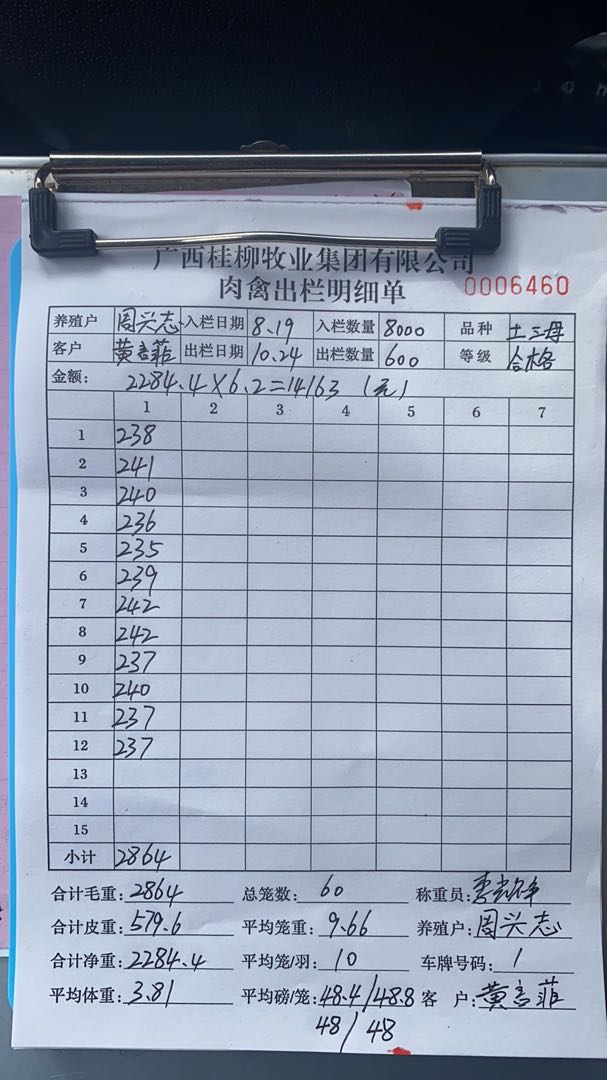 广西桂柳牧业集团有限公司
肉禽出栏明细单 0006460
养殖户 周兴志 入栏日期 8.19 入栏数量 8000 品种 土三母
客户 黄言菲 出栏日期 10.24 出栏数量 600 等级 合格
金额: 2284.4×6.2=14163(元)
1 2 3 4 5 6 7
1 238
2 241
3 240
4 236
5 235
6 239
7 242
8 242
9 237
10 240
11 237
12 237
13
14
15
小计 2864
合计毛重: 2864 总笼数: 60 称重员:
合计皮重: 579.6 平均笼重: 9.66 养殖户: 周兴志
合计净重: 2284.4 平均笼/羽: 10 车牌号码: 1
平均体重: 3.81 平均磅/笼: 48.4/48.8 客 户: 黄言菲
48/48